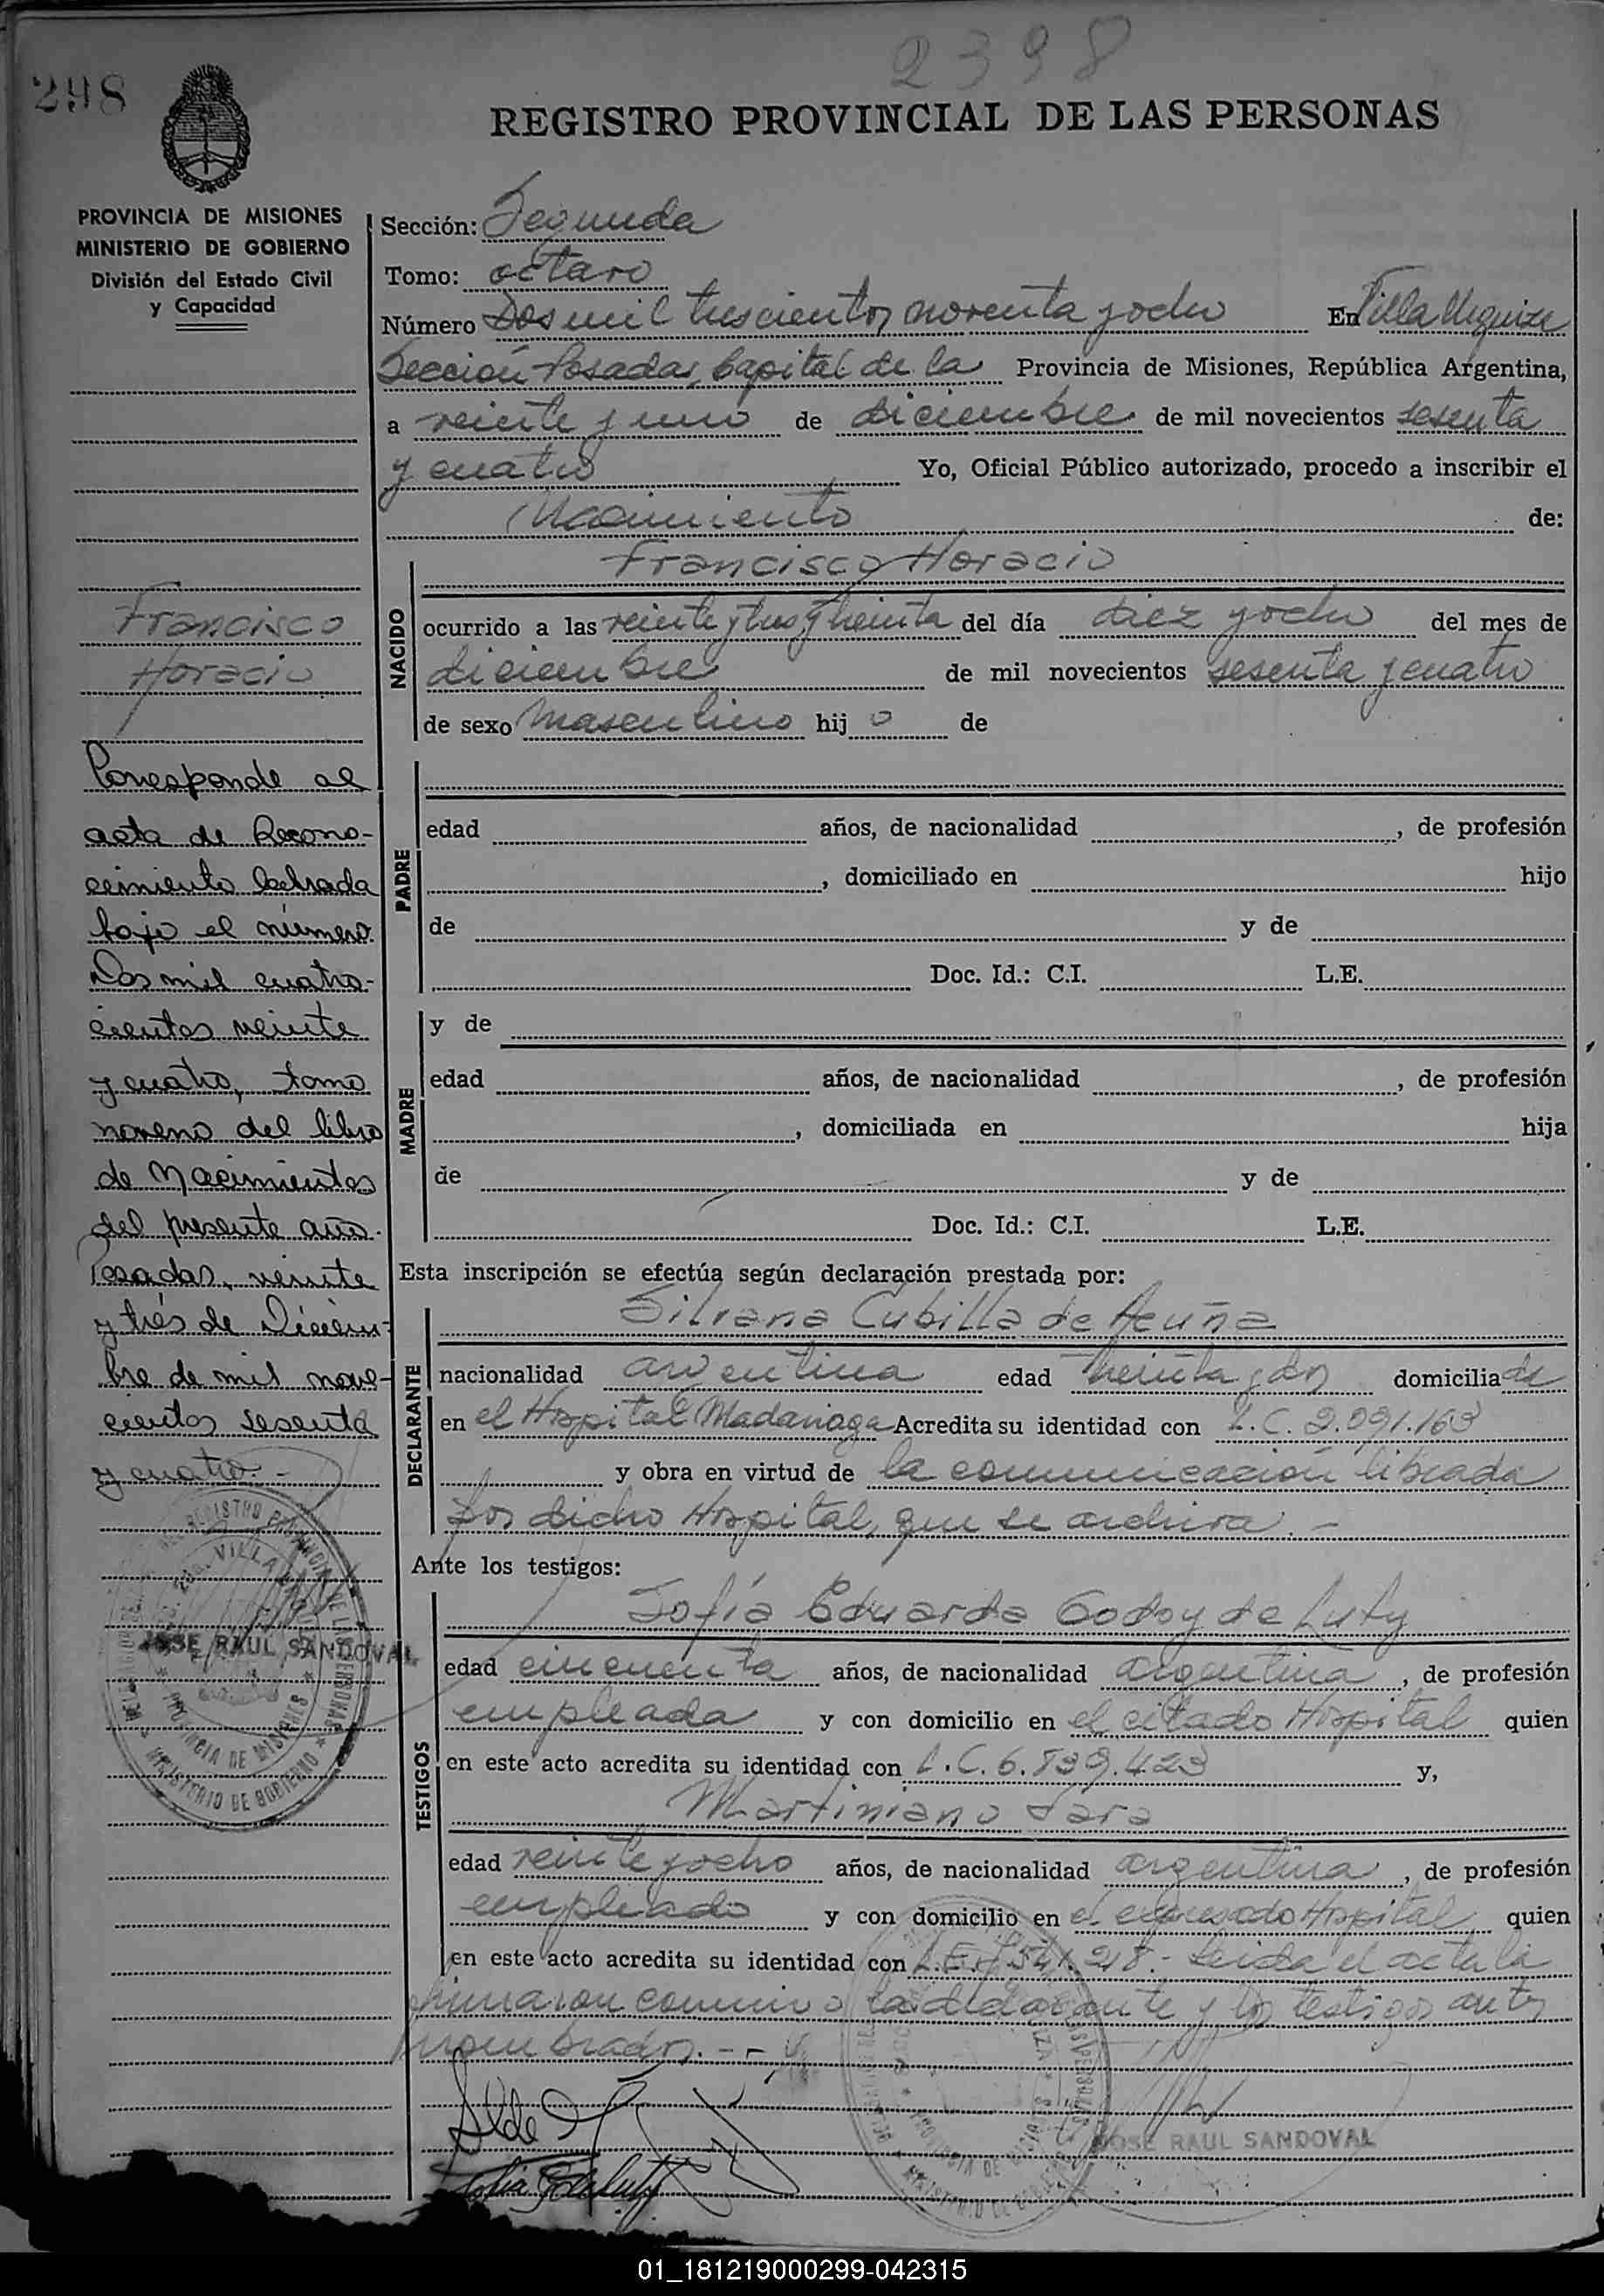 2398
298
REGISTRO PROVINCIAL DE LAS PERSONAS
PROVINCIA DE MISIONES
MINISTERIO DE GOBIERNO
División del Estado Civil
y Capacidad
Sección: Segunda
Tomo: octavo
Número Dos mil trescientos noventa y ocho En Villa Urquiza
Sección Posadas, Capital de la Provincia de Misiones, República Argentina,
a veinte y uno de diciembre de mil novecientos sesenta
y cuatro Yo, Oficial Público autorizado, procedo a inscribir el
Nacimiento de:
Francisco Horacio
NACIDO
ocurrido a las veinte y tres y treinta del día diez y ocho del mes de
diciembre de mil novecientos sesenta y cuatro
de sexo masculino hijo de
Francisco
Horacio
Corresponde al
acta de Recono-
cimiento labrada
bajo el número
Dos mil cuatro-
cientos veinte
y cuatro, tomo
noveno del libro
de Nacimientos
del presente año.
Posadas, veinte
y trés de Diciem-
bre de mil nove-
cientos sesenta
y cuatro.-
JOSE RAUL SANDOVAL
PADRE
edad años, de nacionalidad , de profesión
, domiciliado en hijo
de y de
Doc. Id.: C.I. L.E.
MADRE
y de
edad años, de nacionalidad , de profesión
, domiciliada en hija
de y de
Doc. Id.: C.I. L.E.
Esta inscripción se efectúa según declaración prestada por:
DECLARANTE
Silvana Cubilla de Acuña
nacionalidad argentina edad treinta y dos domiciliada
en el Hospital Madariaga Acredita su identidad con L.C. 2.091.163
y obra en virtud de la comunicación librada
por dicho Hospital, que se archiva.-
Ante los testigos:
TESTIGOS
Sofía Eduarda Godoy de Luty
edad cincuenta años, de nacionalidad argentina, de profesión
empleada y con domicilio en el citado Hospital quien
en este acto acredita su identidad con L.C. 6.839.423 y,
Martiniano Jara
edad veinte y ocho años, de nacionalidad argentina, de profesión
empleado y con domicilio en el expresado Hospital quien
en este acto acredita su identidad con L.E. 7.541.218.- Leida el acta la
firmaron conmigo la declarante y los testigos antes
nombrados.--
JOSE RAUL SANDOVAL
01_181219000299-042315